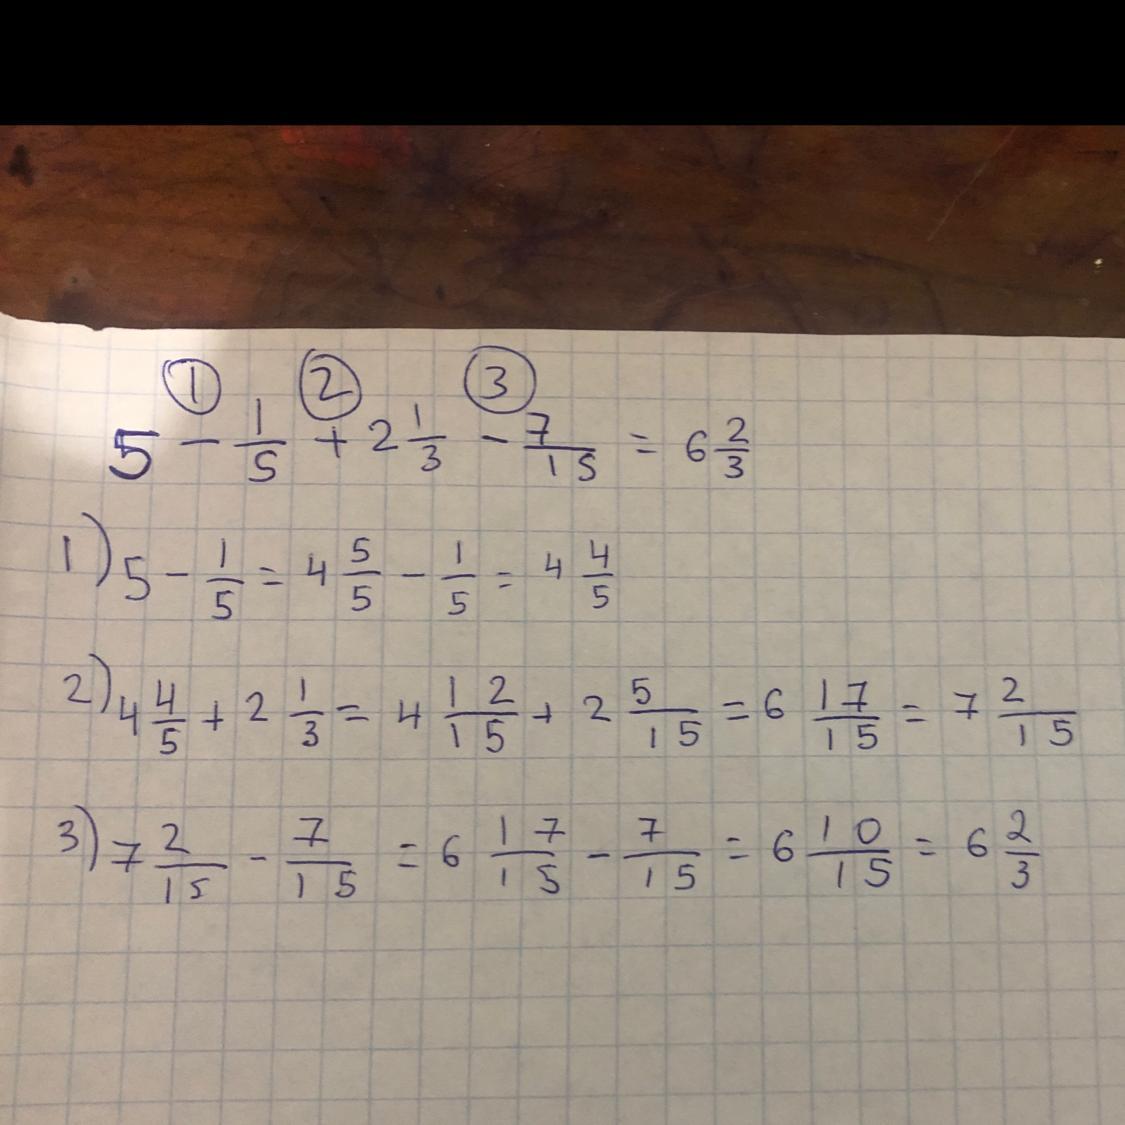 ① ② ③
5 - 1/5 + 2 1/3 - 7/15 = 6 2/3
1) 5 - 1/5 = 4 5/5 - 1/5 = 4 4/5
2) 4 4/5 + 2 1/3 = 4 12/15 + 2 5/15 = 6 17/15 = 7 2/15
3) 7 2/15 - 7/15 = 6 17/15 - 7/15 = 6 10/15 = 6 2/3